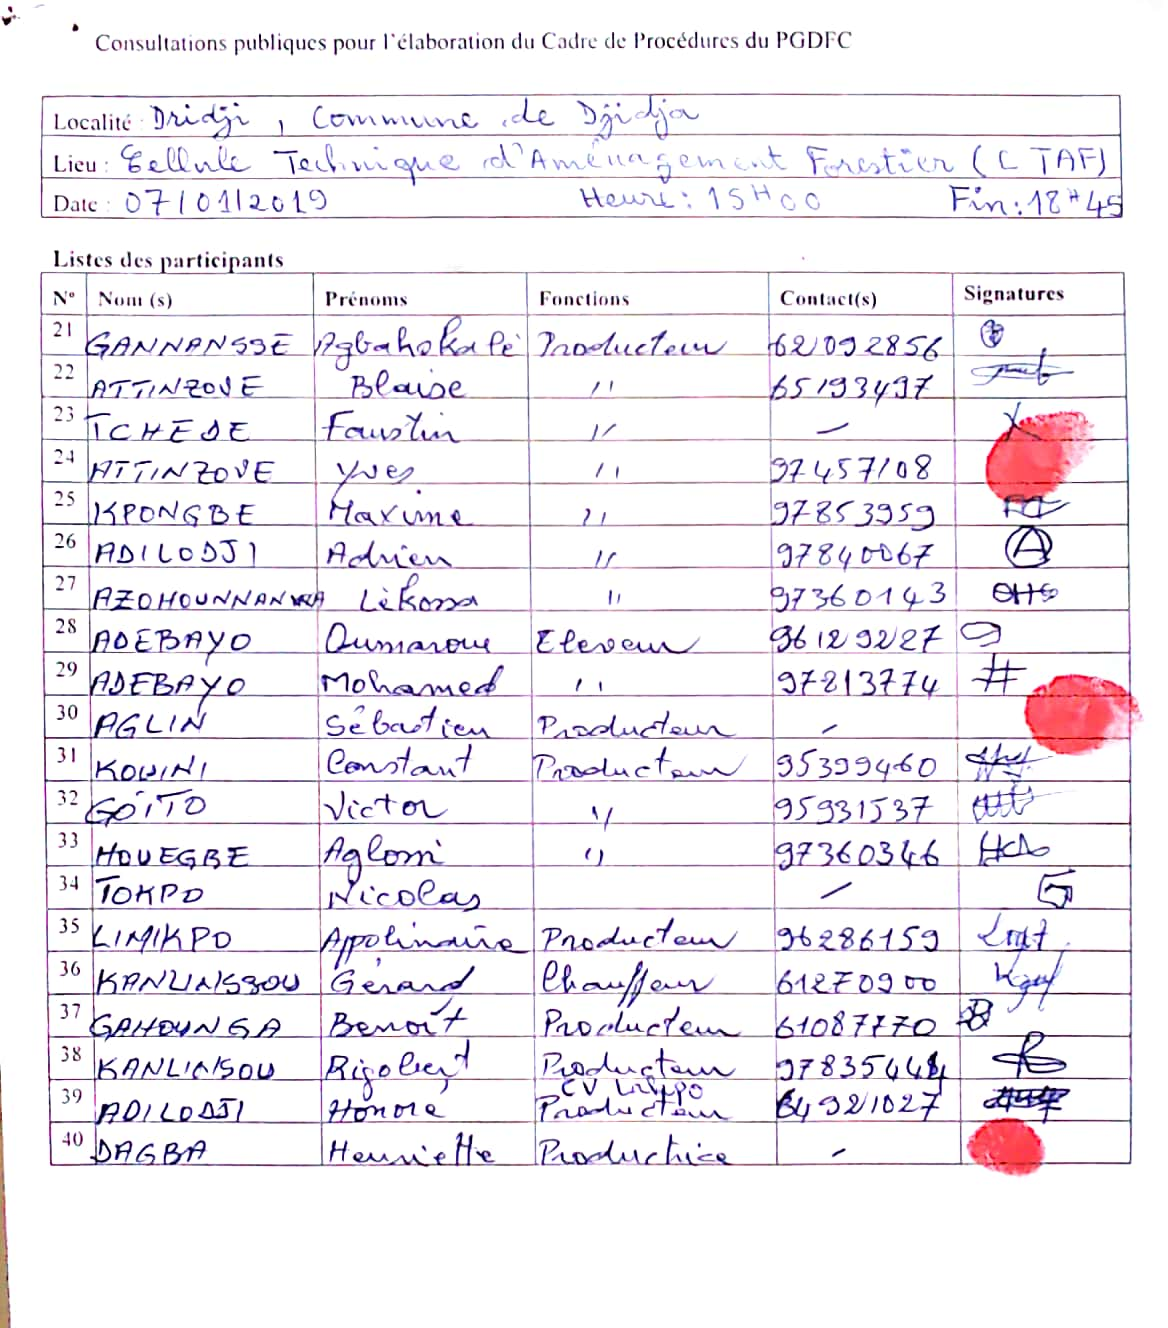 Consultations publiques pour l'élaboration du Cadre de Procédures du PGDFC
Localité : Dridji, Commune de Djidja
Lieu : Cellule Technique d'Aménagement Forestier (CTAF)
Date : 07/01/2019 Heure : 15H00 Fin : 18H45
Listes des participants
N° Nom (s) Prénoms Fonctions Contact(s) Signatures
21 GANNANSSE Agbahokapè Producteur 62092856
22 ATTINZOVE Blaise '' 65193497
23 TCHEDE Faustin '' –
24 ATTINZOVE Yves '' 97457108
25 KPONGBE Maxime '' 97853959
26 ADILODJI Adrien '' 97840067 A
27 Lèkossa '' 97360143
28 ADEBAYO Oumarou Eleveur 96129227
29 ADEBAYO Mohamed '' 97213774
30 AGLIN Sébastien Producteur –
31 KOUINI Constant Producteur 95399460
32 GOITO Victor '' 95931537
33 HOUEGBE Aglomi '' 97360346
34 TOKPO Nicolas –
35 LIMIKPO Appolinaire Producteur 96286159
36 KANLINSSOU Gérard Chauffeur 61270900
37 GAHOUNGA Benoît Producteur 61087770
38 KANLINSOU Rigobert Producteur
39 ADILODJI Honoré CV Producteur 64921027
40 DAGBA Henriette Productrice –